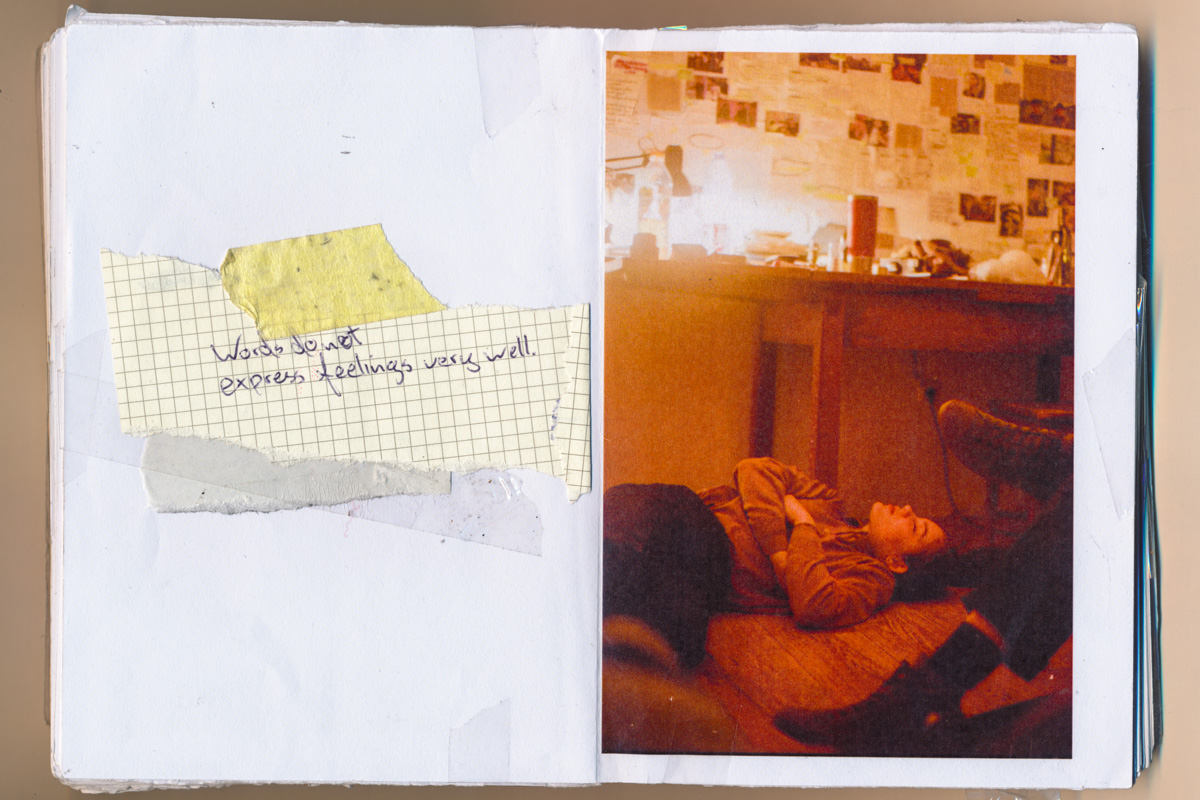 Words do not
express feelings very well.